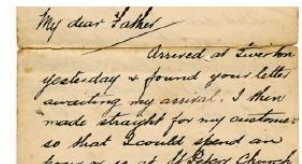 My dear Father
Arrived at Tiverton
yesterday & found your letter
awaiting my arrival. I then
made straight for my customers
so that I could spend an
hour or so at St Peter Church